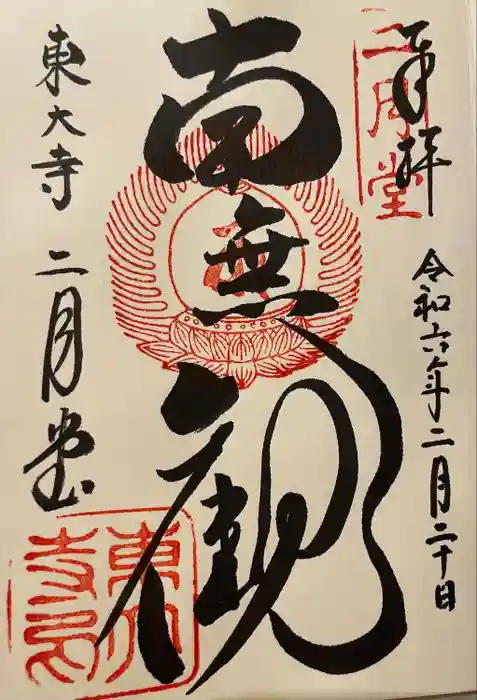 奉拝
二月堂
令和六年二月二十日
南無観
東大寺 二月堂
東大
寺印